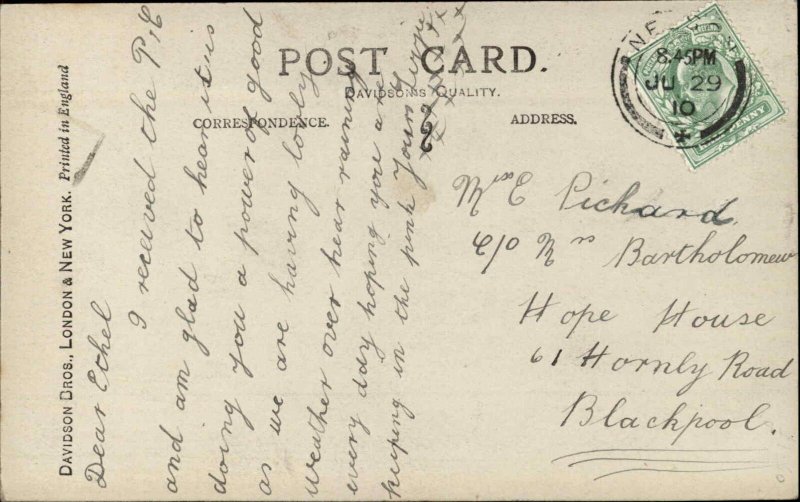 POST CARD.
DAVIDSON'S QUALITY.
CORRESPONDENCE.
ADDRESS.
DAVIDSON BROS., LONDON & NEW YORK. Printed in England
Dear Ethel
I received the P/C
and am glad to hear it is
doing you a power of good
as we are having lovely
weather over hear raining
every day hoping you are
keeping in the pink Yours
x x x x x
8.45PM
JU 29
10
Miss E Pichard
C/O Mrs Bartholomew
Hope House
61 Hornly Road
Blackpool.